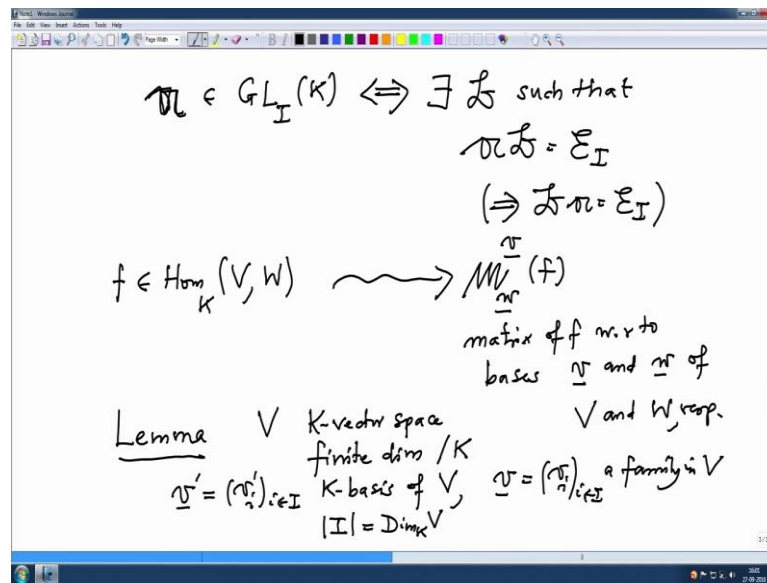 Note1 - Windows Journal
File Edit View Insert Actions Tools Help
Page Width
𝔄 ∈ GL_I (K) ⟺ ∃ 𝔅 such that
𝔄𝔅 = ℰ_I
(⇒ 𝔅𝔄 = ℰ_I)
f ∈ Hom_K (V, W) ⟿ M^v_w (f)
matrix of f w.r to
bases v and w of
V and W, resp.
Lemma V K-vector space
finite dim /K
v' = (v'_i)_{i∈I} K-basis of V, v = (v_i)_{i∈I} a family in V
|I| = Dim_K V
3/3
3
16:01
27-09-2016